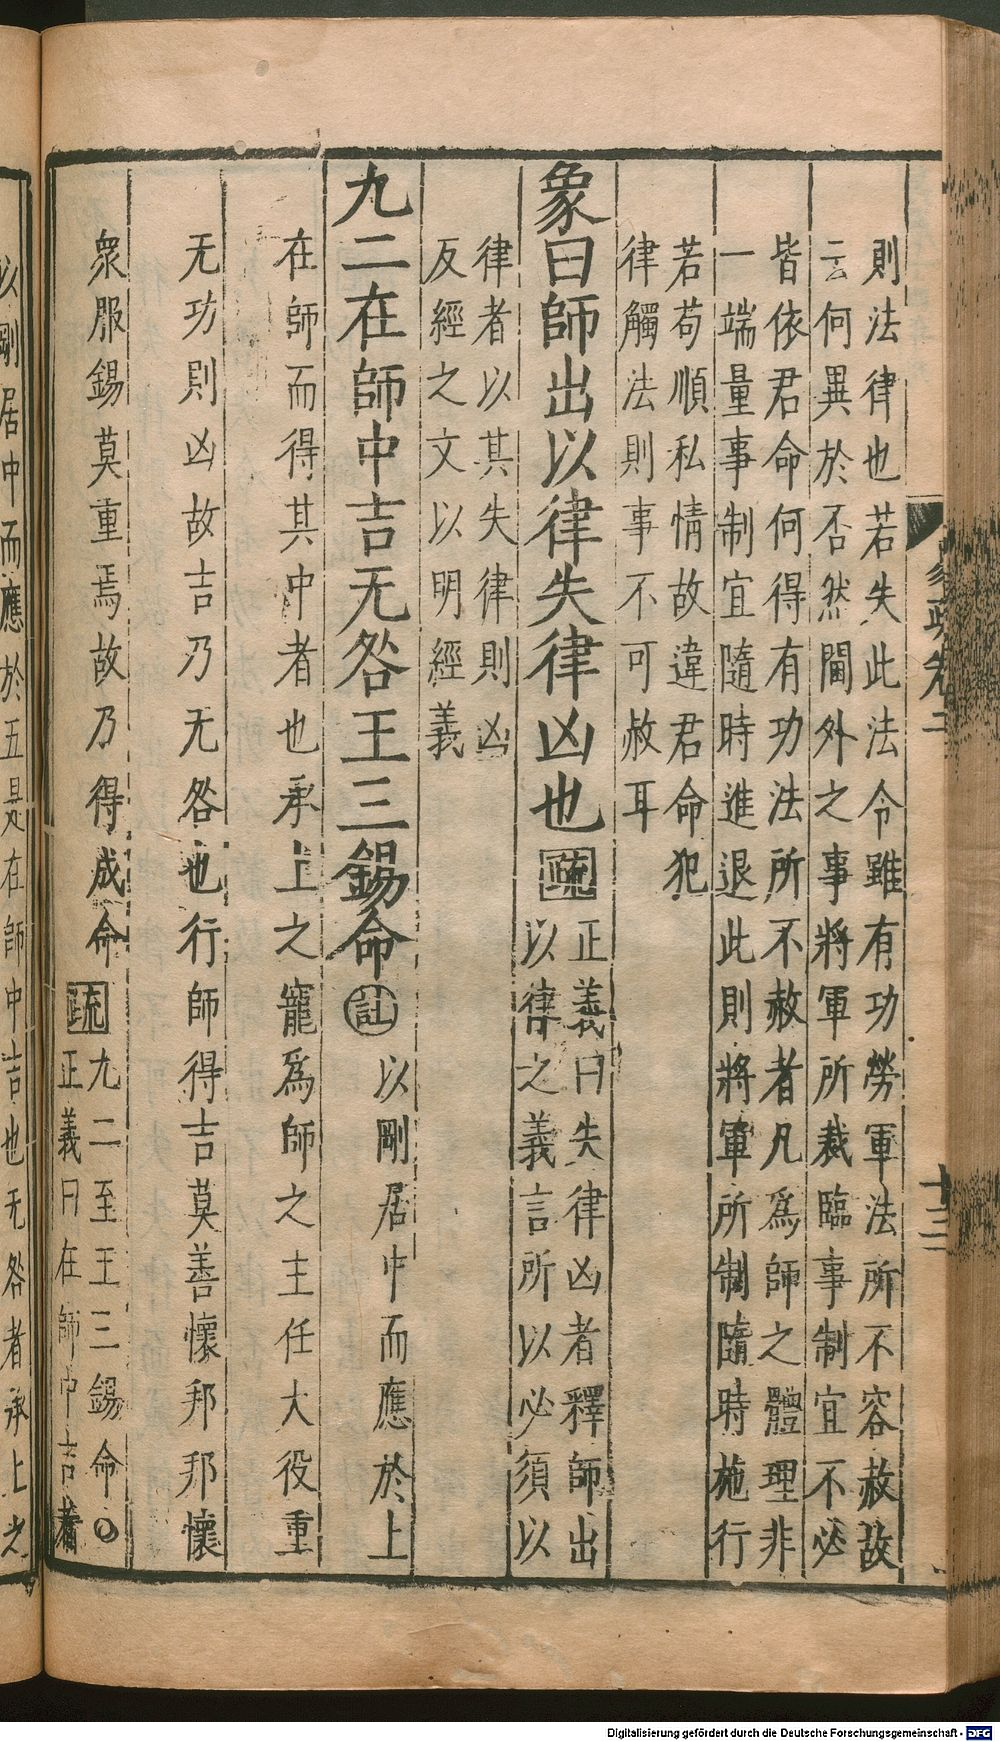 則法律也若失此法令雖有功勞軍法所不容赦故
云何異於否然閫外之事將軍所裁臨事制宜不必
皆依君命何得有功法所不赦者凡為師之體理非
一端量事制宜隨時進退此則將軍所制隨時施行
若苟順私情故違君命犯
律觸法則事不可赦耳
象曰師出以律失律凶也疏
正義曰失律凶者釋師出
以律之義言所以必須以
律者以其失律則凶
反經之文以明經義
九二在師中吉无咎王三錫命註
以剛居中而應於上
在師而得其中者也承上之寵為師之主任大役重
无功則凶故吉乃无咎也行師得吉莫善懷邦邦懷
眾服錫莫重焉故乃得成命疏
九二至王三錫命○
正義曰在師中吉者
以剛居中而應於五是在師中吉也无咎者承上之
易疏卷二
十三
Digitalisierung gefördert durch die Deutsche Forschungsgemeinschaft - DFG